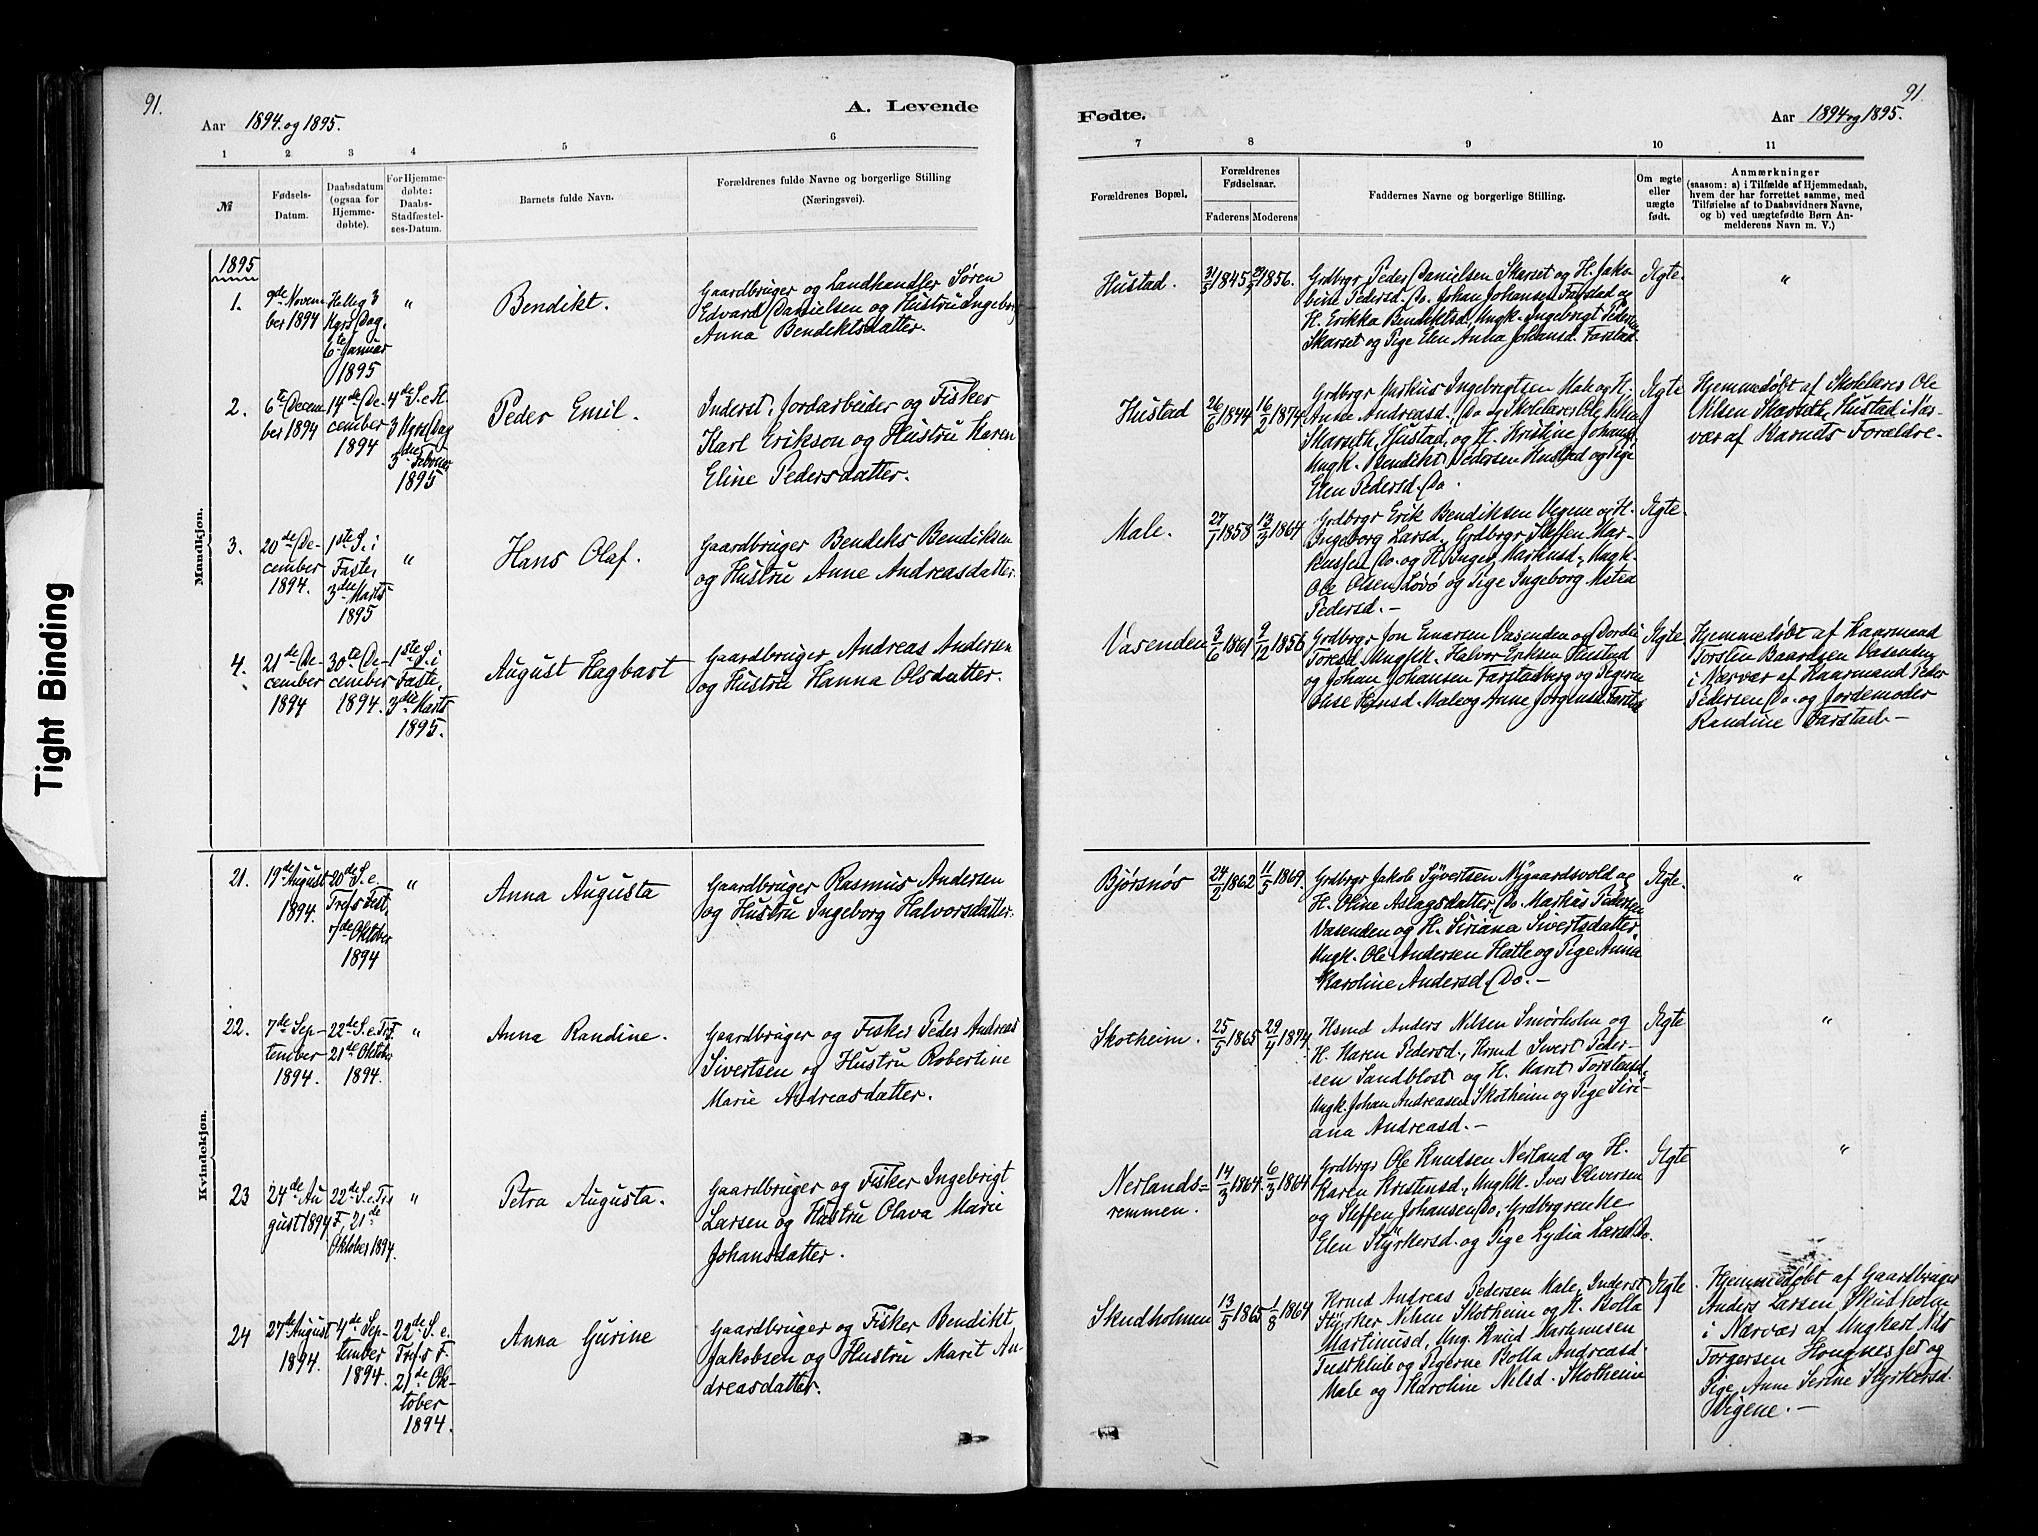 91.
Aar 1894. og 1895.
A. Levende
1 2 3 4 5 6
№
Fødsels-
Datum.
Daabsdatum
(ogsaa for
Hjemme-
døbte).
For Hjemme-
døbte:
Daabs-
Stadfæstel-
ses-Datum.
Barnets fulde Navn.
Forældrenes fulde Navne og borgerlige Stilling
(Næringsvei).
Mandkjøn.
1895
1.
9de Novem
ber 1894
Hellig 3
Kgrs Dag
6te Januar
1895
"
Bendikt.
Gaardbruger og Landhandler Søren
Edvard Danielsen og Hustru Ingeborg
Anna Bendiktsdatter.
2.
6te Decem
ber 1894
14de De-
cember
1894
4de S. e. H.
3 Kgrs Dag
3die Februar
1895
Peder Emil.
Inderst, Jordarbeider og Fisker
Karl Erikson og Hustru Karen
Eline Pedersdatter.
3.
20de De-
cember
1894.
1ste S. i
Faste,
3die Marts
1895
"
Hans Olaf.
Gaardbruger Bendiks Bendiksen
og Hustru Anne Andreasdatter.
4.
21de De-
cember
1894
30te De-
cember
1894.
1ste S. i
Faste,
3die Marts
1895.
August Hagbart
Gaardbruger Andreas Andersen
og Hustru Hanna Olsdatter.
Kvindekjøn.
21.
19de August
1894.
20de S. e.
Trefs Fest,
7de Oktober
1894
"
Anna Augusta
Gaardbruger Rasmus Andersen
og Hustru Ingeborg Halvorsdatter.
22.
7de Sep-
tember
1894.
22de S. e. Tref.
21de Oktob.
1894.
"
Anna Randine.
Gaardbruger og Fisker Peder Andreas
Sivertsen og Hustru Robertine
Marie Andreasdatter.
23
24de Au
gust 1894
22de S. e. Trs
F, 21de
Oktober 1894.
"
Petra Augusta.
Gaardbruger og Fisker Ingebrigt
Larsen og Hustru Olava Marie
Johansdatter.
24
27de August
1894.
4de Sep-
tember
1894.
22de S. e.
Trefs F.
21de Ok-
tober
1894.
Anna Gurine
Gaardbruger og Fisker Bendikt
Jakobsen og Hustru Marit An-
dreasdatter.
91.
Fødte.
Aar 1894 og 1895.
7 8 9 10 11
Forældrenes Bopæl.
Forældrenes
Fødselsaar.
Faderens Moderens
Faddernes Navne og borgerlige Stilling.
Om ægte
eller
uægte
født.
Anmærkninger
(saasom: a) i Tilfælde af Hjemmedaab,
hvem der har forrettet samme, med
Tilføielse af to Daabsvidners Navne,
og b) ved uægtefødte Børn An-
melderens Navn m. V.)
Hustad.
1845 1856.
Grdbrgr Peder Danielsen Skarset og H. Jako-
bine Pedersd. Do. Johan Johansen Farstad og
H. Erikka Bendiktsd., Ungk. Ingebrigt Peders.
Skarset og Pige Elen Anna Johansd. Farstad.
Ægte.
"
Hustad
26/6 1844 16/2 1874
Grdbrgr Markus Ingebrigtsen Male og H.
Anne Andreasd. Do., Skolelærer Ole Nilsen
Skarseth, Hustad, og H. Kristine Johansd.
Ungk. Bendikt Pedersen Hustad og Pige
Elen Pedersd. Do.
Ægte
Hjemmedøbt af Skolelærer Ole
Nilsen Skarseth, Hustad i Nær-
vær af Barnets Forældre.
Male.
27/1 1858 13/3 1864
Grdbrgr Erik Bendiksen Vegene og H.
Ingeborg Larsd., Grdbrgr Steffen Mar-
kussen Do. og H. Inger Markusd., Ungk.
Ole Olsen Løvø og Pige Ingeborg Mitea
Pedersd. —
Ægte.
Vasenden
3/6 1861 9/12 1856
Grdbrgr Jon Einarsen Vasenden og Dordei
Toresd., Ungkk. Halvor Eriksen Hustad
og Johan Johansen Farstadberg og Pigerne
Olise Hansd. Male og Anne Jørgensd. Farstad
Ægte.
Hjemmedøbt af Kaarmand
Torsten Baardsen Vasenden
i Nærvær af Kaarmand Peder
Pedersen Do. og Jordemoder
Randine Farstad. —
Bjørsnøs
24/2 1862 11/5 1869.
Grdbrgr Jakob Syvertsen Nygaardsvold og
H. Oline Aslagsdatter, Do. Markus Pedersen
Vasenden og H. Siriana Sivertsdatter,
Ungk. Ole Andersen Hatle og Pige Anna
Karoline Andersd. Do. —
Ægte.
"
Skotheim.
25/5 1865 29/4 1874.
Hsmd Anders Nilsen Smørholm og
H. Karen Pedersd., Krmd Sivert Peder-
sen Sandblost og H. Marit Torstensd.
Ungk. Johan Andreasen Skotheim og Pige Siri-
ana Andreasd. —
Ægte
"
Nerlands=
remmen.
14/3 1864. 6/3 1864
Grdbrgr Ole Knudsen Nerland og H.
Karen Kristensd., Ungkk. Iver Oliversen
og Steffen Johansen Do., Grdbrgrenke
Elen Styrkersd. og Pige Lydia Larsd. Do.
Ægte
"
Skudholmen
13/5 1865 1/8 1864
Krmd Andreas Pedersen Male, Inderst
Styrker Nilsen Skotheim og H. Bolla
Martinusd., Ung. Knud Martinusen
og Pigerne Bolla Andreasd.
Male og Karoline Nilsd. Skotheim
Ægte
Hjemmedøbt af Gaardbruger
Anders Larsen Skudholm
i Nærvær af Ungkarl Nils
Torgersen og
Pige Anne Serine Styrkersd.
Vigene. —
Tight Binding